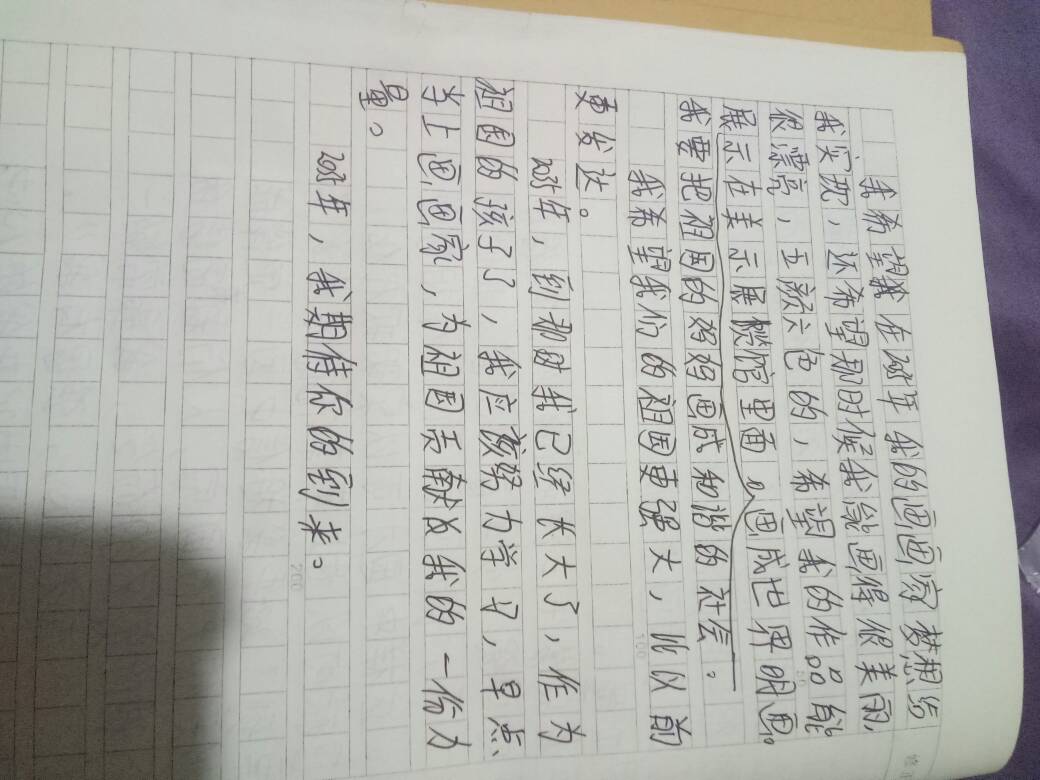 我希望我在2035年 我的画画家梦想给
我实现，还希望那时候我能画得很美丽，
很漂亮，五颜六色的，希望我的作品能
展示在美示展馆里面。画成世界明画。
我要把祖国的妈妈画成和谐的社会。
我希望我们的祖国更强大，比以前
更发达。
2035年，到那时我已经长大了，作为
祖国的孩子了，我应该努力学习，早点
当上画画家，为祖国贡献出我的一份力
量。
2035年，我期待你的到来。
200
100